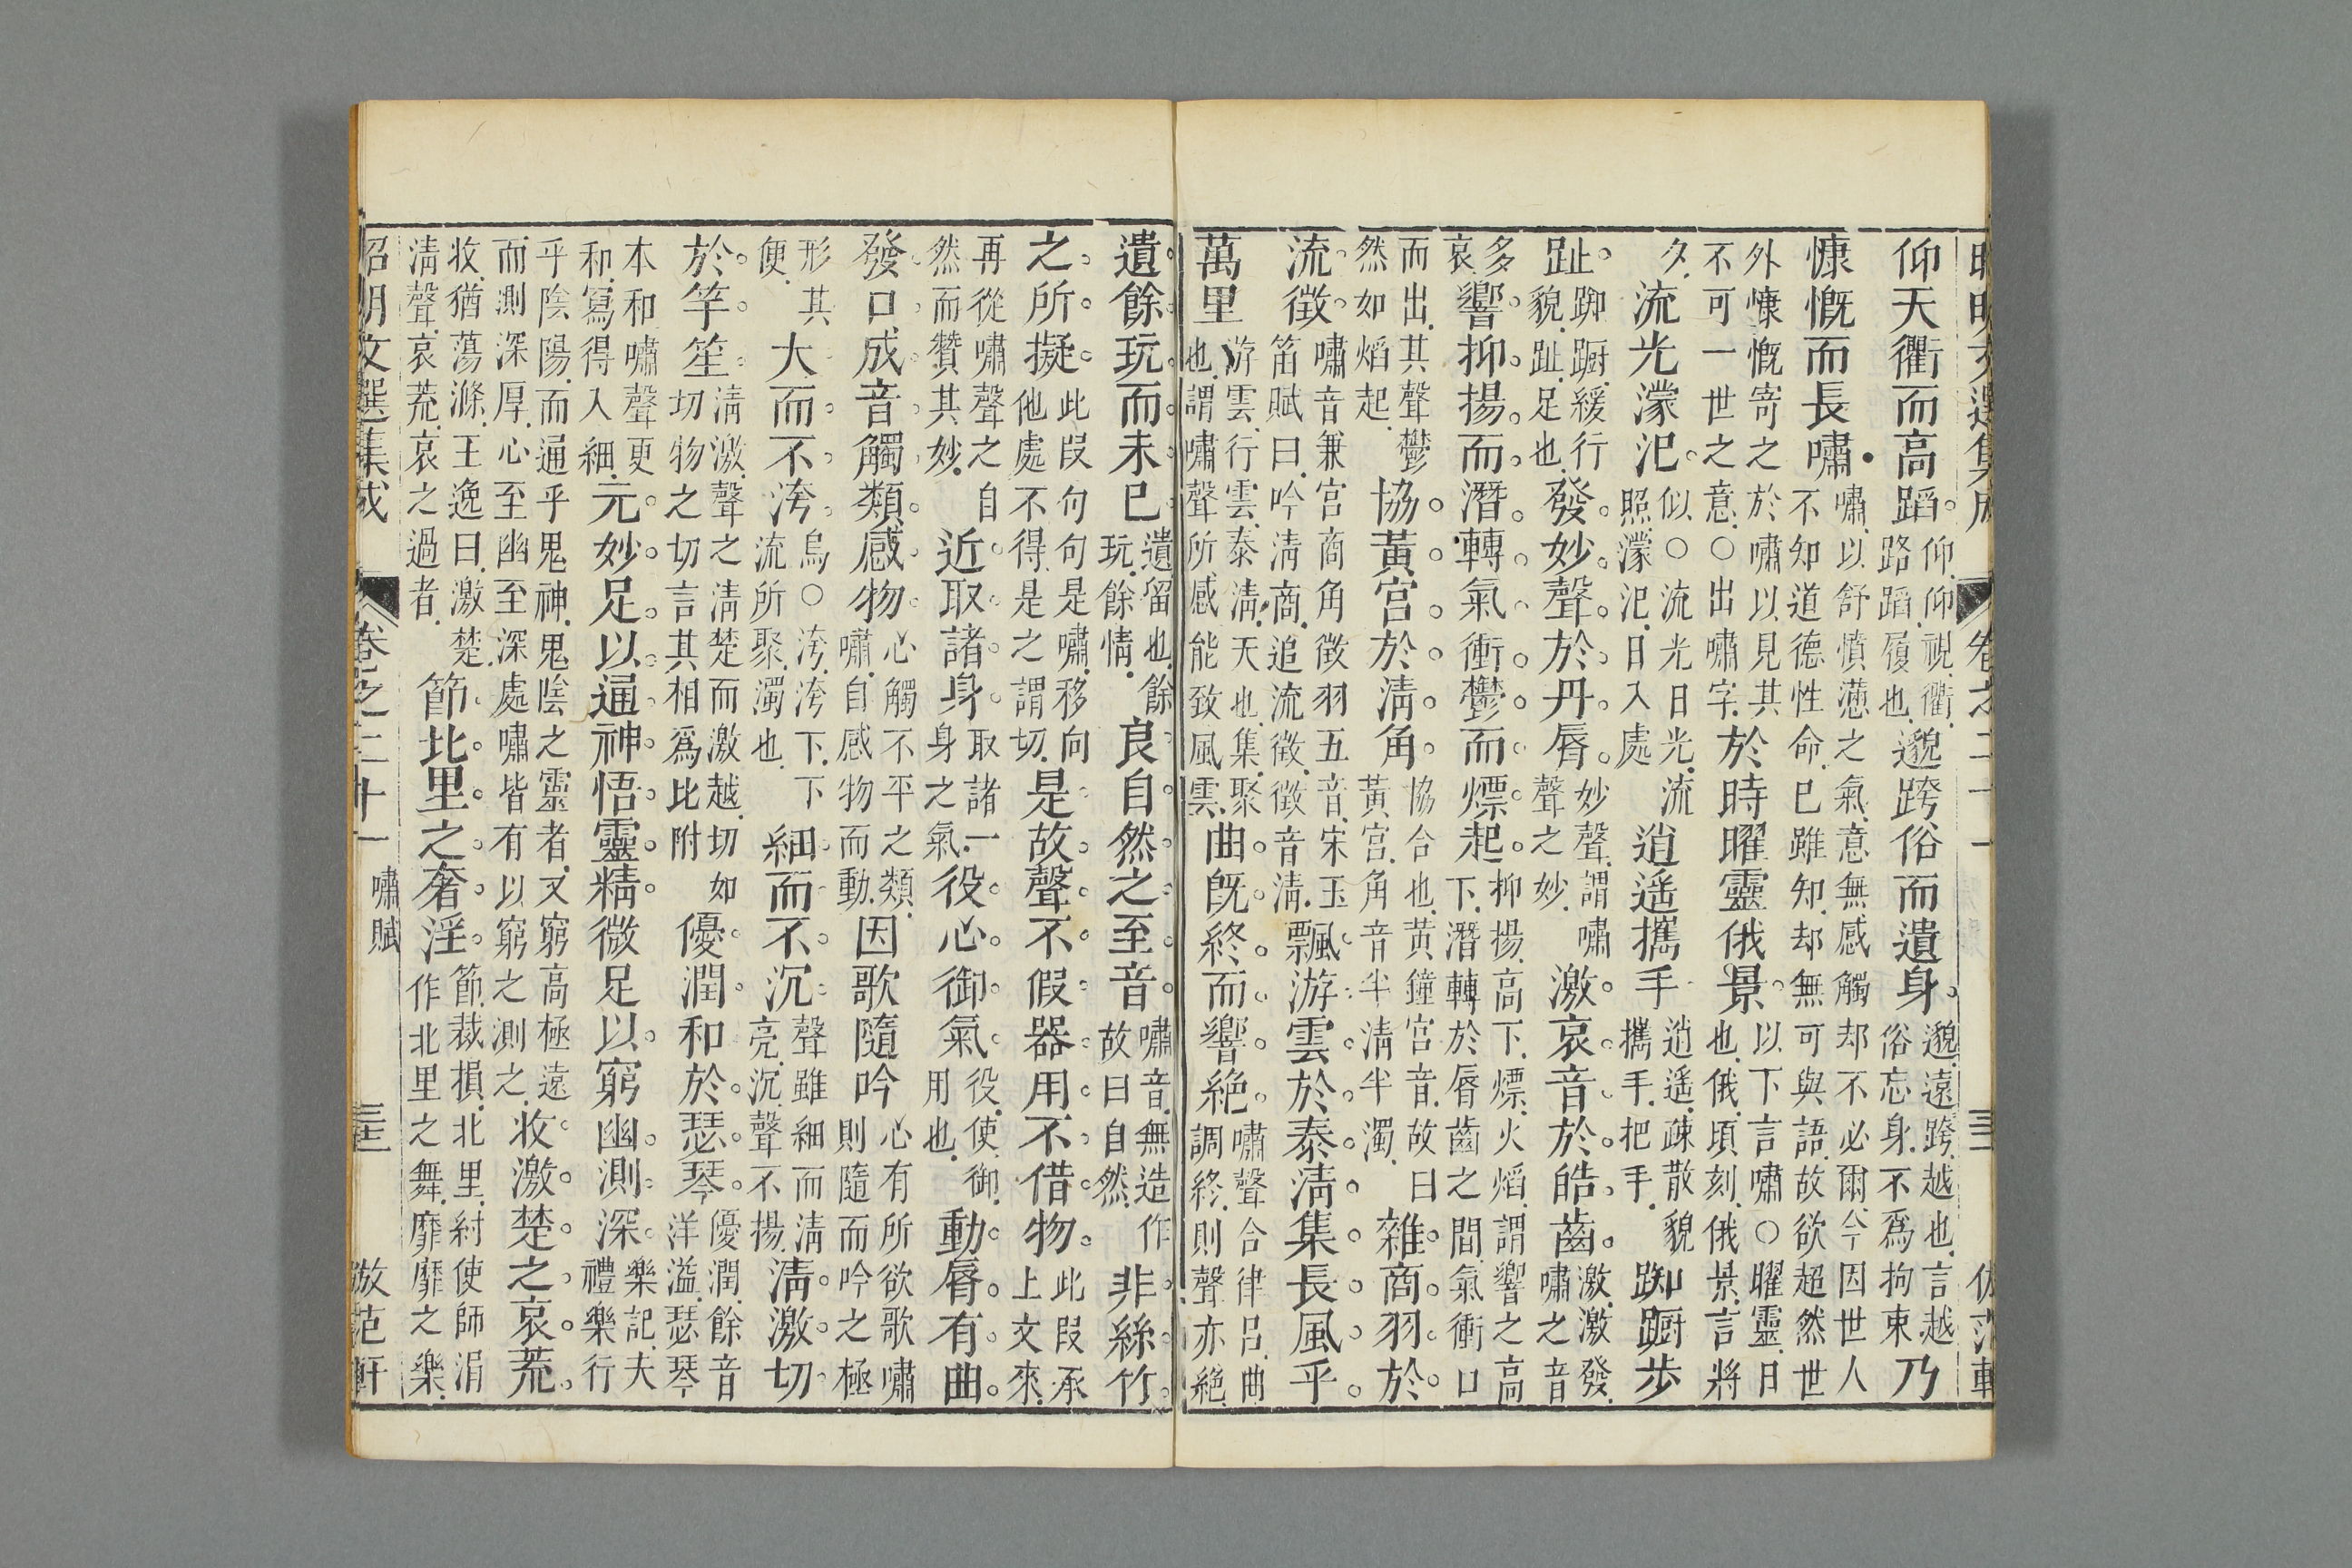 昭明文選集成 卷之二十一
仰天衢而高蹈仰仰視衢路蹈履也邈跨俗而遺身邈遠跨越也言越俗忘身不為拘束乃
慷慨而長嘯嘯以舒憤懣之氣意無感觸却不必爾今因世人不知道德性命已雖知却無可與語故欲超然世
外慷慨寄之於嘯以見其不可一世之意○出嘯字於時曜靈俄景以下言嘯○曜靈日也俄頃刻俄景言將
夕流光濛汜似○流光日光流照濛汜日入處逍遙攜手逍遙疎散貌攜手把手踟躕步
趾踟躕緩行貌趾足也發妙聲於丹脣妙聲謂嘯聲之妙激哀音於皓齒激激發嘯之音
多哀響抑揚而潛轉氣衝鬱而熛起抑揚高下熛火熖謂響之高下潛轉於脣齒之間氣衝口
而出其聲鬱然如熖起協黃宮於清角協合也黃鐘宮音故曰黃宮角音半清半濁雜商羽於
流徵嘯音兼宮商角徵羽五音宋玉笛賦曰吟清商追流徵徵音清飄游雲於泰清集長風乎
萬里游雲行雲泰清天也集聚也謂嘯聲所感能致風雲曲既終而響絕嘯聲合律呂曲調終則聲亦絕
遺餘玩而未已遺留也餘玩餘情良自然之至音嘯音無造作故曰自然非絲竹
之所擬此段句句是嘯移向他處不得是之謂切是故聲不假器用不借物此段承上文來
再從嘯聲之自然而贊其妙近取諸身取諸一身之氣役心御氣役使御用也動脣有曲
發口成音觸類感物心觸不平之類嘯自感物而動因歌隨吟心有所欲歌嘯則隨而吟之極
形其便大而不洿烏○洿洿下下流所聚濁也細而不沉聲雖細而清亮沉聲不揚清激切
於竽笙清激聲之清楚而激越切如切物之切言其相為比附優潤和於瑟琴優潤餘音洋溢瑟琴
本和嘯聲更和寫得入細元妙足以通神悟靈精微足以窮幽測深樂記夫禮樂行
乎陰陽而通乎鬼神鬼陰之靈者又窮高極遠而測深厚心至幽至深處嘯皆有以窮之測之收激楚之哀荒
收猶蕩滌王逸曰激楚清聲哀荒哀之過者節北里之奢淫節裁損北里紂使師涓作北里之舞靡靡之樂
昭明文選集成 卷之二十一 嘯賦 倣范軒